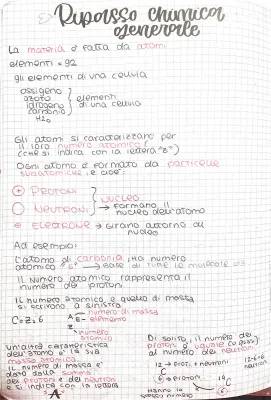 Ripasso chimica
generale
La materia è fatta da atomi
elementi = 92
gli elementi di una cellula
ossigeno
azoto
idrogeno
carbonio
H2O
elementi
di una cellula
Gli atomi si caratterizzano per
il loro numero atomico
(che si indica con la lettera "Z")
Ogni atomo è formato da particelle
subatomiche, e cioè:
+ PROTONI
NEUTRONI
NUCLEO
→ formano il
nucleo dell'atomo
- elettrone → girano attorno al
nucleo
Ad esempio:
L'atomo di carbonio, ha numero
atomico "6" → base di tutte le molecole
Il numero atomico rappresenta il
numero dei protoni
Il numero atomico e quello di massa
si scrivono a sinistra
C = Z = 6
A → numero di massa
E → elemento
Z
numero
atomico
Un'altra caratteristica
dell'atomo è la sua
massa atomica
Il numero di massa è
dato dalla somma
dei protoni e dei neutroni
e si indica con la lettera
"A"
Di solito il numero dei
protoni è uguale
al numero dei neutroni
12 → prot. e neutroni
6 → protoni
12-6=6
neutroni
Hanno la